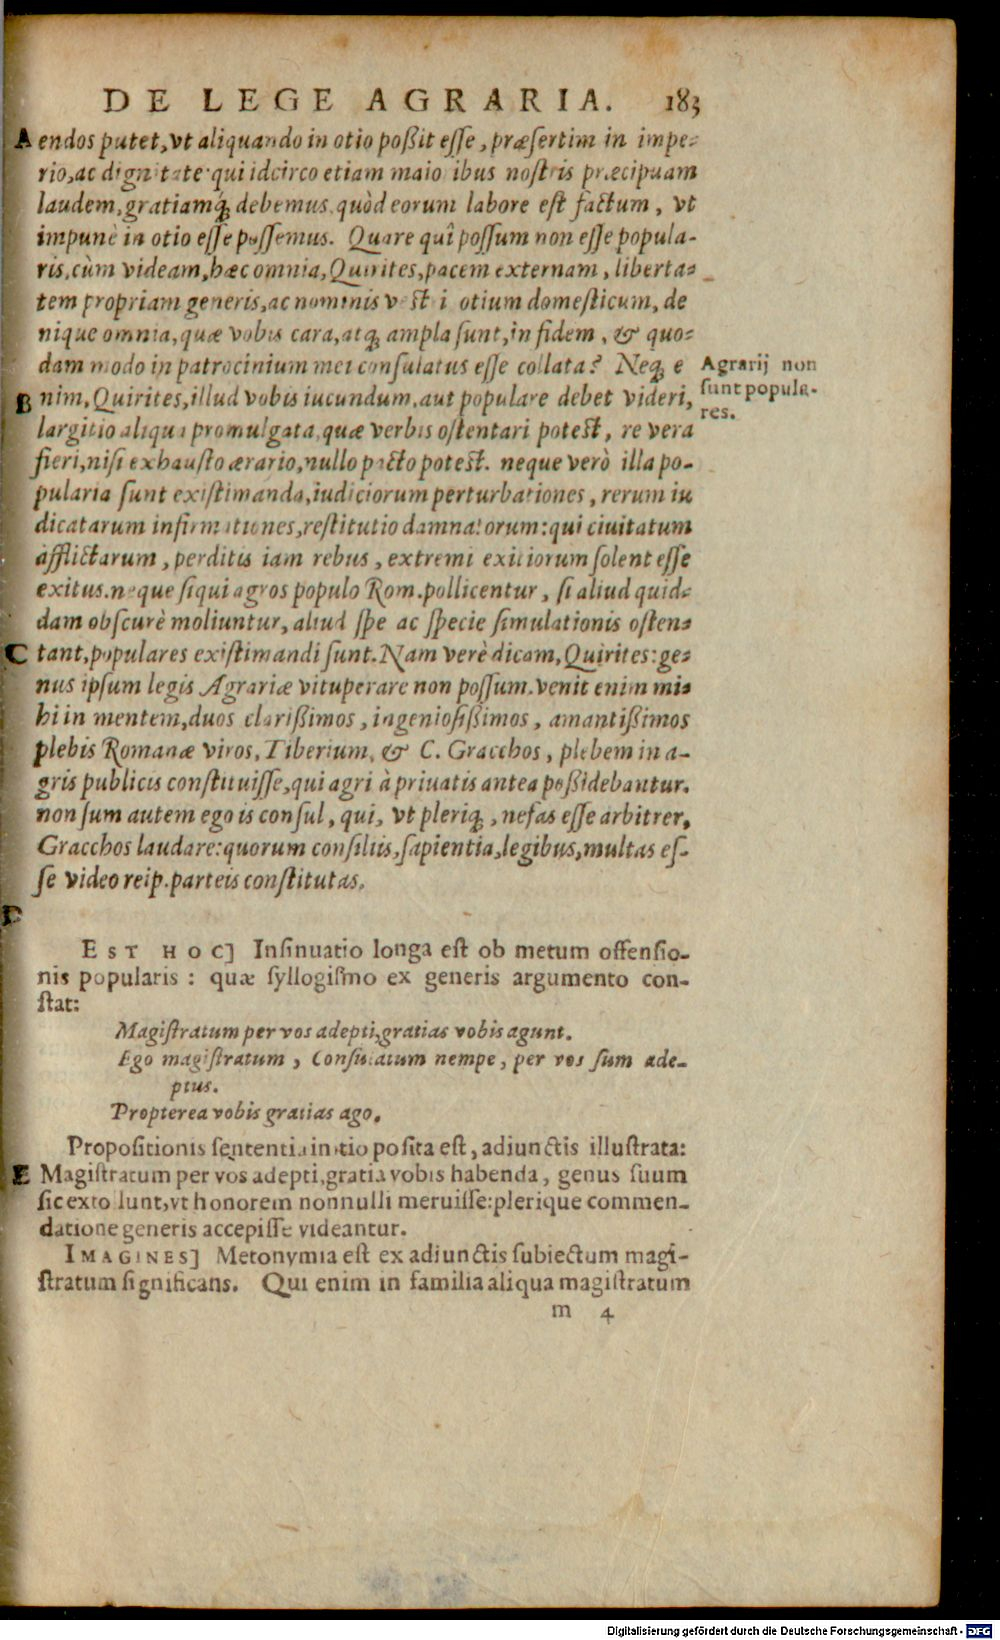 DE LEGE AGRARIA. 183
A endos putet, vt aliquando in otio poßit esse, præsertim in impe-
rio, ac dignitate qui idcirco etiam maioribus nostris præcipuam
laudem, gratiamq́; debemus, quòd eorum labore est factum, vt
impunè in otio esse possemus. Quare quî possum non esse popula-
ris, cùm videam, hæc omnia, Quirites, pacem externam, liberta-
tem propriam generis, ac nominis vestri otium domesticum, de
nique omnia, quæ vobis cara, atq; ampla sunt, in fidem, & quo-
dam modo in patrocinium mei consulatus esse collata? Neq; e
Agrarij non
sunt popula-
res.
B nim, Quirites, illud vobis iucundum, aut populare debet videri,
largitio aliqua promulgata, quæ verbis ostentari potest, re vera
fieri, nisi exhausto ærario, nullo pacto potest. neque verò illa po-
pularia sunt existimanda, iudiciorum perturbationes, rerum iu
dicatarum infirmationes, restitutio damnatorum: qui ciuitatum
afflictarum, perditis iam rebus, extremi exitiorum solent esse
exitus. neque siqui agros populo Rom. pollicentur, si aliud quid-
dam obscurè moliuntur, aliud spe ac specie simulationis osten-
C tant, populares existimandi sunt. Nam verè dicam, Quirites: ge-
nus ipsum legis Agrariæ vituperare non possum. venit enim mi-
hi in mentem, duos clarißimos, ingeniosißimos, amantißimos
plebis Romanæ viros, Tiberium, & C. Gracchos, plebem in a-
gris publicis constituisse, qui agri à priuatis antea poßidebantur.
non sum autem ego is consul, qui, vt pleriq;, nefas esse arbitrer,
Gracchos laudare: quorum consiliis, sapientia, legibus, multas es-
se video reip. parteis constitutas.
D
EST HOC] Insinuatio longa est ob metum offensio-
nis popularis: quæ syllogismo ex generis argumento con-
stat:
Magistratum per vos adepti, gratias vobis agunt.
Ego magistratum, Consulatum nempe, per vos sum ade-
ptus.
Propterea vobis gratias ago.
Propositionis sententia initio posita est, adiunctis illustrata:
E Magistratum per vos adepti, gratia vobis habenda, genus suum
sic extollunt, vt honorem nonnulli meruisse: plerique commen-
datione generis accepisse videantur.
IMAGINES] Metonymia est ex adiunctis subiectum magi-
stratum significans. Qui enim in familia aliqua magistratum
m 4
Digitalisierung gefördert durch die Deutsche Forschungsgemeinschaft - DFG